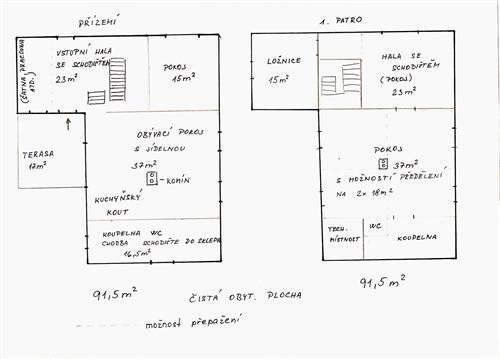 PŘÍZEMÍ
(ŠATNA, PRACOVNA
ATD.)
VSTUPNÍ HALA
SE SCHODIŠTĚM
23 m²
POKOJ
15 m²
TERASA
17 m²
OBÝVACÍ POKOJ
S JÍDELNOU
37 m²
KOMÍN
KUCHYŇSKÝ
KOUT
KOUPELNA WC
CHODBA SCHODIŠTĚ DO SKLEPA
16,5 m²
91,5 m²
1. PATRO
LOŽNICE
15 m²
HALA SE
SCHODIŠTĚM
(POKOJ)
23 m²
POKOJ
37 m²
S MOŽNOSTÍ PŘEDĚLENÍ
NA 2x 18 m²
TECH.
MÍSTNOST
WC
KOUPELNA
91,5 m²
ČISTÁ OBYT. PLOCHA
možnost přepažení